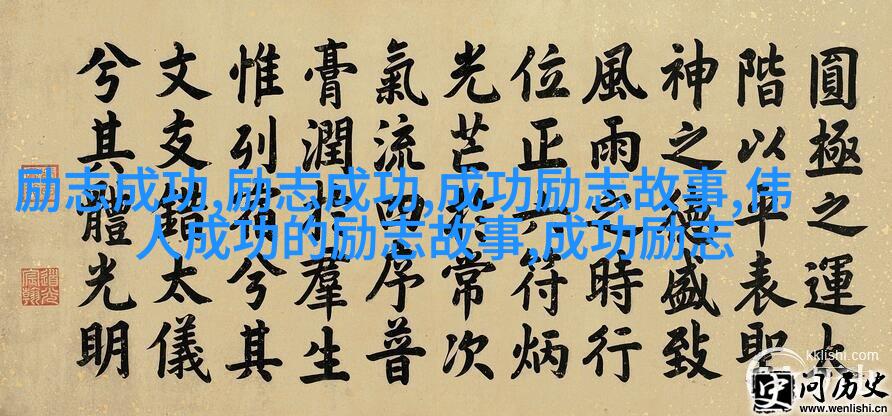 圓極之運
階以平表
神之德盛致
風雨之時行
位正六符炳
光芒於常次
氣流四序普
膏潤於羣生
惟列宿兮其
文友太儀
兮其體光明
励志成功,励志成功,成功励志故事,伟
人成功的励志故事,成功励志
道光宸翰
kklishi.com
问历史
www.wenlishi.cn